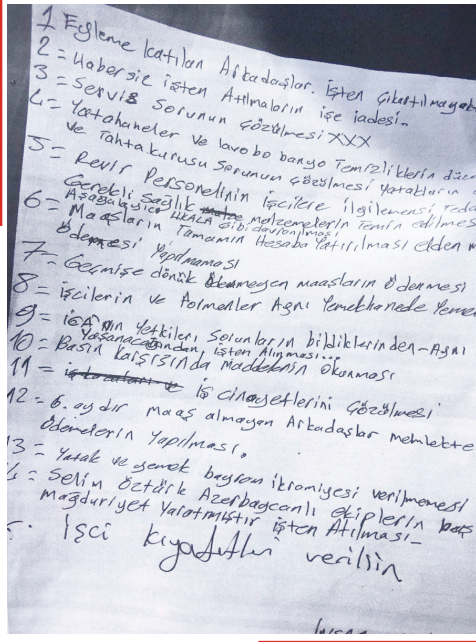 1 Eyleme katılan Arkadaşlar. İşten Çıkartılmayacak
2 = Habersiz işten Atılmaların işe iadesi..
3 = Servis Sorunun Çözülmesi XXX
4 = Yatahaneler ve lavobo banyo Temizliklerin düze
ve Tahtakurusu Sorunun Çözülmesi yatakların
5 = Revir Personelinin işcilere ilgilenmesi Teda
Gerekli Sağlık malzemelerin Temin edilmes
Aşağılayıcı gibi davranılması
6 = Maaşların Tamamın Hesaba Yatırılması elden
Ödemesi Yapılmaması
7 = Geçmişe dönük Ödenmeyen maaşların Ödenmesi
8 = işcilerin ve Formenler Aynı Yemekhanede Yeme
9 = iGA'nın Yetkileri Sorunların bildiklerinden - Aynı
Yaşanacağından işten Alınması...
10 = Basın karşısında maddelerin Okunması
11 = iş kazaları ve iş cinayetlerini Çözülmesi
12 = 6. aydır maaş almayan Arkadaşlar memlekte
Ödemelerin Yapılması.
13 = Yatak ve yemek bayram ikramiyesi verilmemesi
4 = Selim Öztürk Azerbaycanlı ekiplerin baş
mağduriyet Yaratmıştır işten Atılması -
işci kıyafetleri verilsin